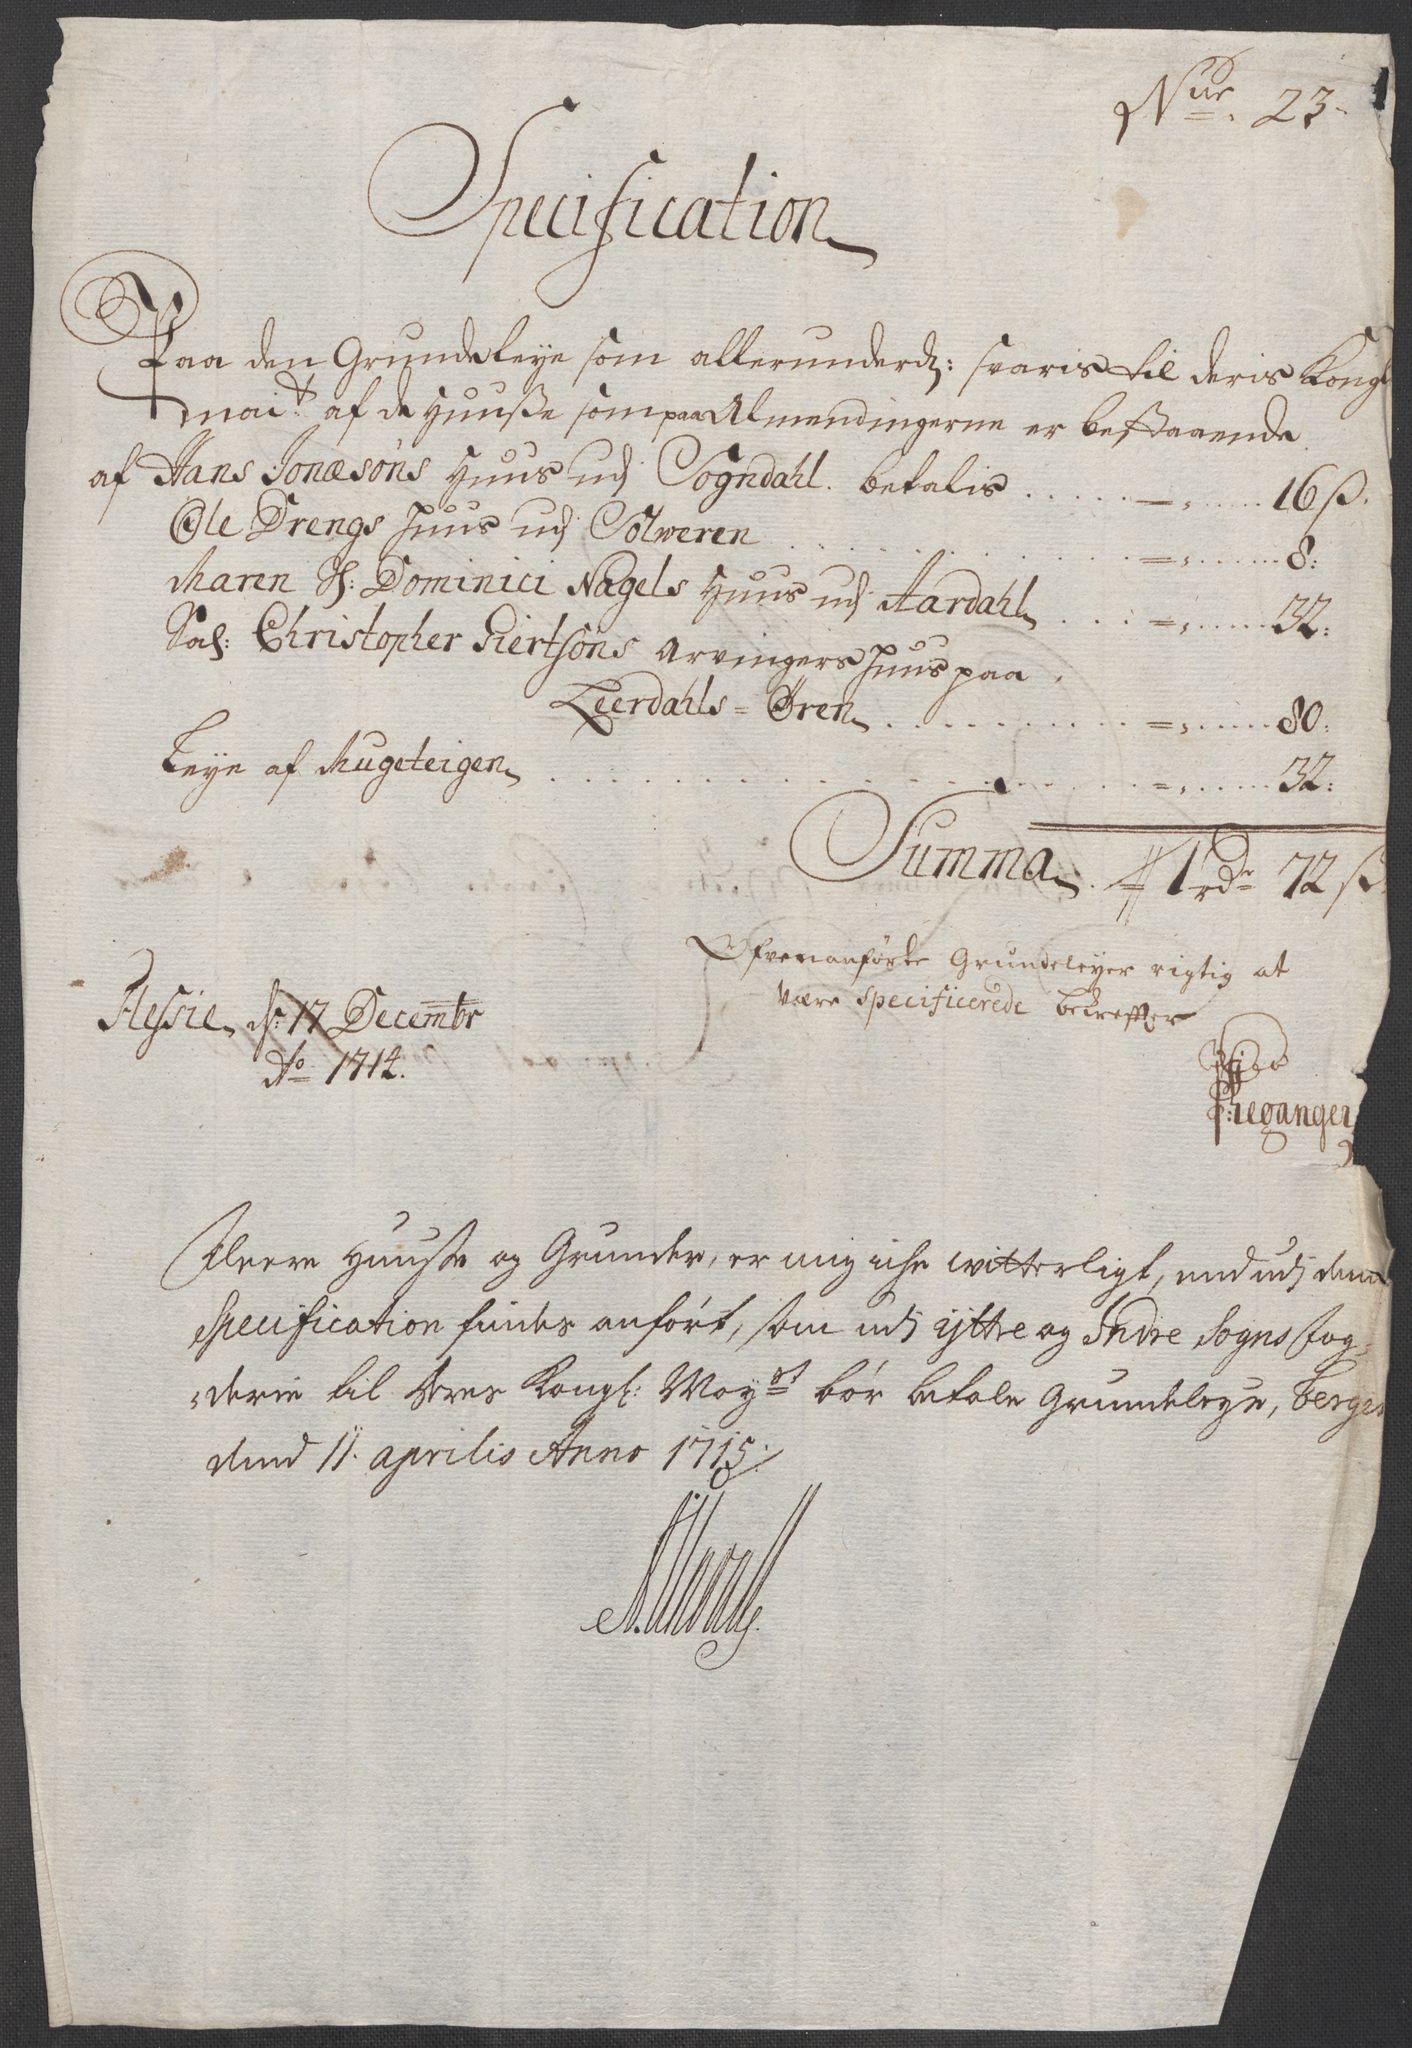 Nür. 23.
Specification
Paa den Grundeleÿe som allerunderd: svaris til deris Kongl
mait: af de Huuße som paa Almendingerne er bestaaende
af Hans Jonæsøns Huus udj Sogndahl. betalis ..... = , .... 16 ß.
Ole Drengs Huus udj Solweren ..... = , .... 8:
Maren Sl: Dominici Nagels Huus udj Aardahl ..... = , .... 32:
Sal: Christopher Giertsøns Arvingers Huus paa
Leerdahls = Øren ..... = , .... 80:
Leye af Mugeteigen ..... = , .... 32:
Summa 1 rdr 72 ß
Ofvenanførte Grundeleÿer rigtig at
være specificerede bekrefter
Flessie d: 17 Decembr
Ao 1714.
Fleere Huuße og Grunder, er mig iche witterligt, end udj denne
specification findes anført, som udj ÿttre og Indre Sogns fog=
=derie til deres Kongl: Maÿst bør betale Grundeleÿe, Bergen
dend 11. aprilis Anno 1715.